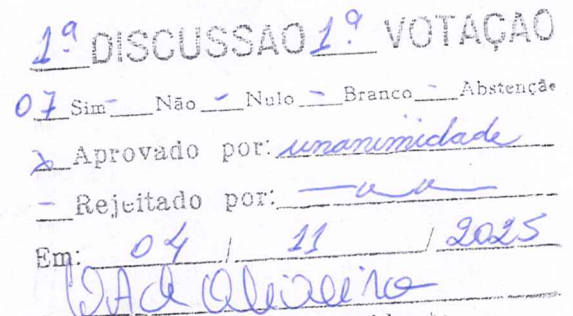 1ª DISCUSSAO 1ª VOTAÇAO
07 Sim - Não - Nulo - Branco - Abstenção
x Aprovado por: unanimidade
- Rejeitado por:
Em: 04 / 11 / 2025